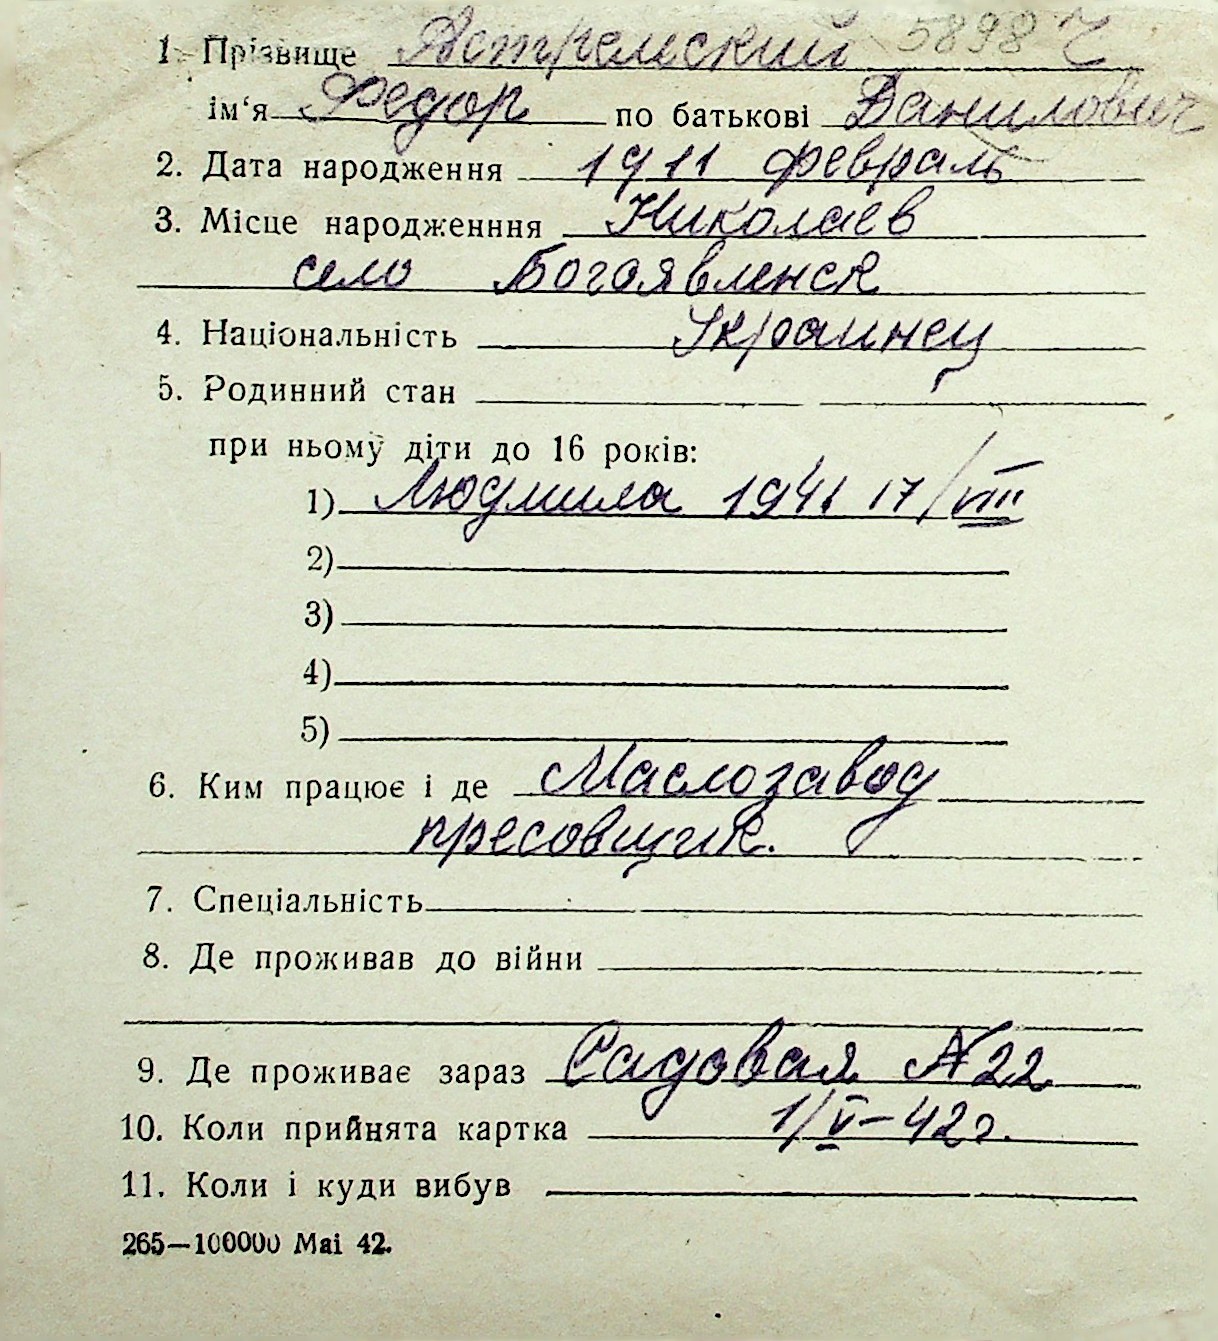 1. Прізвище Ястремский 5898 Ч
ім‘я Федор по батькові Данилович
2. Дата народження 1911 февраль
3. Місце народженння Николаев
село Богоявленск
4. Національність Украинец
5. Родинний стан
при ньому діти до 16 років:
1) Людмила 1941 17/VIII
2)
3)
4)
5)
6. Ким працює і де Маслозавод
пресовщик.
7. Спеціальність
8. Де проживав до війни
9. Де проживає зараз Садовая № 22
10. Коли прийнята картка 1/V–42г.
11. Коли і куди вибув
265—100000 Mai 42.